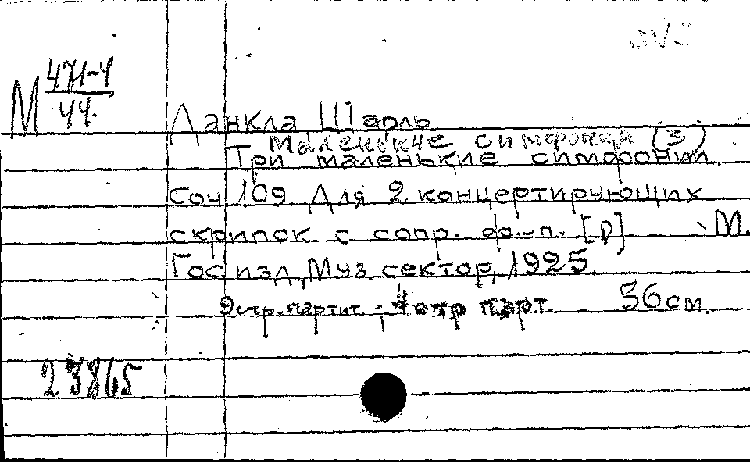 М 471-4
44.
Данкла Шарль
Маленькие симфонии (3)
Три маленькие симфонии.
Соч 109 Для 2 концертирующих
скрипок с сопр. ф-п. [P] М.
Госизд, Муз сектор, 1925.
9 стр. партит., 4 стр парт. 36 см.
23865